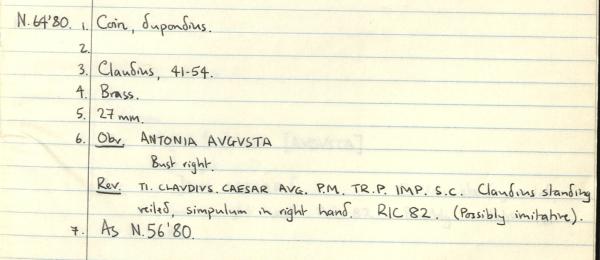 N.64'80. 1. Coin, dupondius.
2.
3. Claudius, 41-54.
4. Brass.
5. 27 mm.
6. Obv. ANTONIA AVGVSTA
Bust right.
Rev. TI. CLAVDIVS. CAESAR AVG. P.M. TR.P. IMP. S.C. Claudius standing
veiled, simpulum in right hand. RIC 82. (Possibly imitative).
7. As N.56'80.